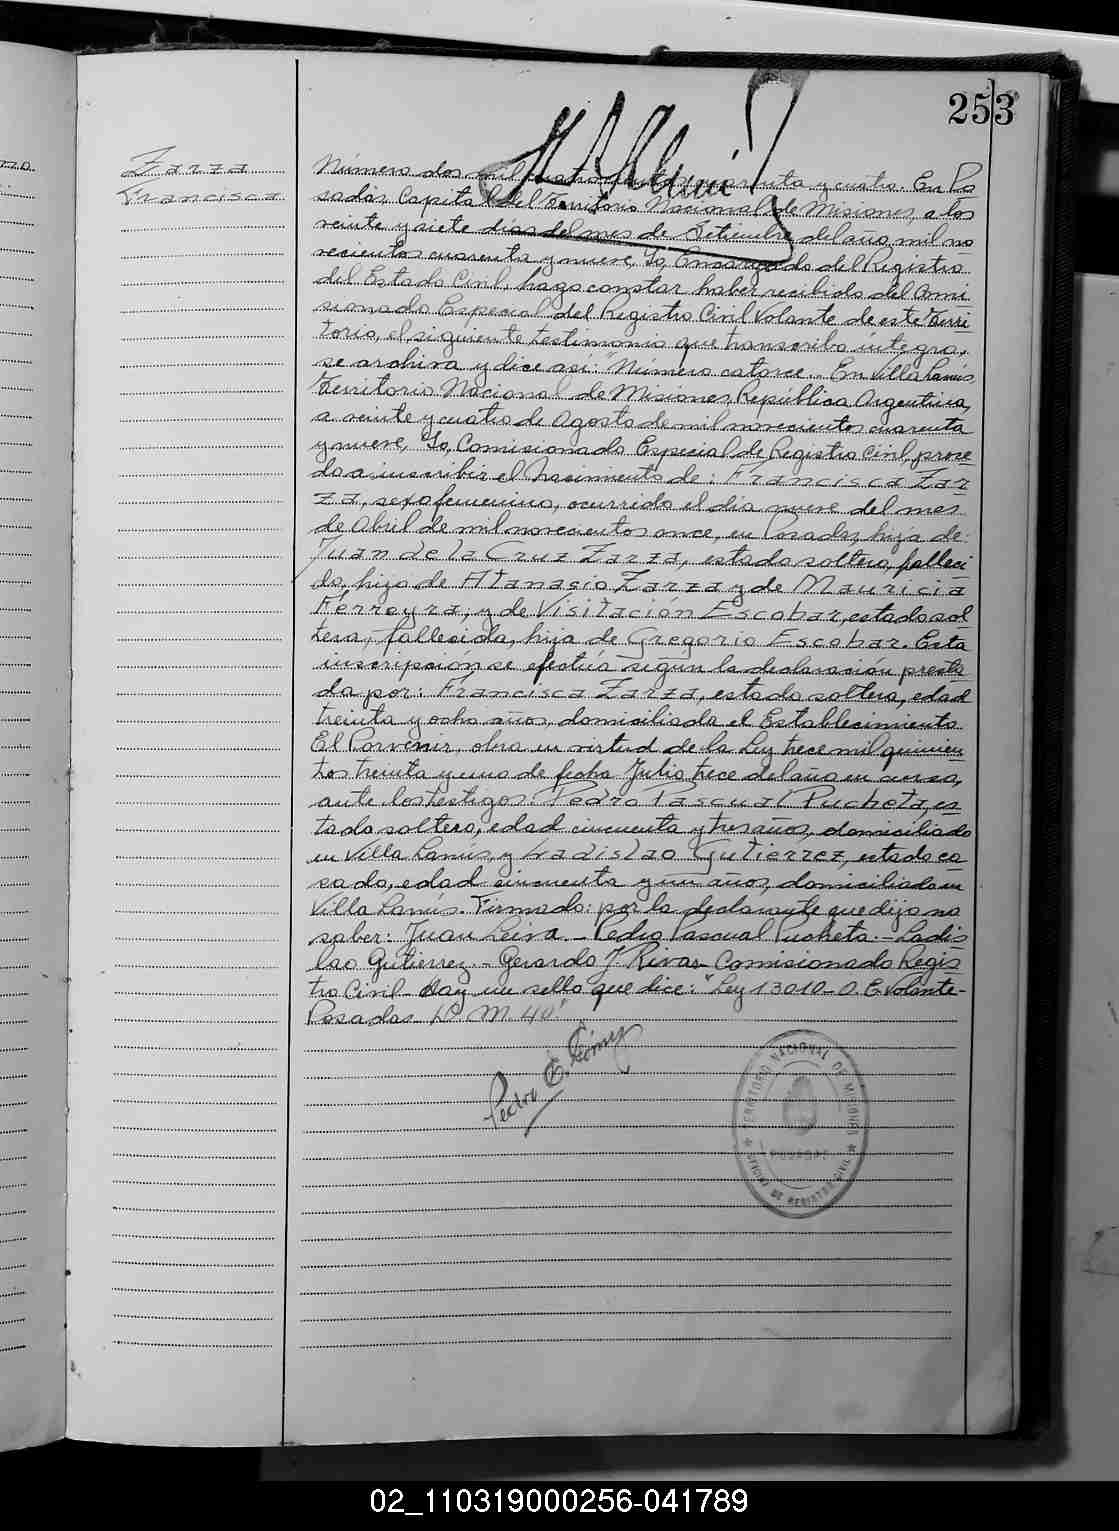 253
Zarza
Francisca
Número dos mil cuatrocientos cuarenta y cuatro. En Po
sadas, Capital del Territorio Nacional de Misiones, a los
veinte y siete días del mes de Setiembre del año mil no
vecientos cuarenta y nueve, Yo, Encargado del Registro
del Estado Civil, hago constar haber recibido del Comi
sionado Especial del Registro Civil Volante de este Terri
torio, el siguiente testimonio que transcribo íntegro,
se archiva y dice así: "Número catorce.. En Villa Lanús,
Territorio Nacional de Misiones, República Argentina,
a veinte y cuatro de Agosto de mil novecientos cuarenta
y nueve, Yo, Comisionado Especial de Registro Civil, proce
do a inscribir el Nacimiento de: Francisca Zar
za, sexo femenino, ocurrido el dia nueve del mes
de Abril de mil novecientos once, en Posadas, hija de:
Juan de la Cruz Zarza, estado soltero, falleci
do, hijo de Atanasio Zarza y de Mauricia
Ferreyra, y de Visitación Escobar, estado sol
tera, fallecida, hija de Gregorio Escobar. Esta
inscripción se efectúa según la declaración presta
da por: Francisca Zarza, estado soltera, edad
treinta y ocho años, domiciliada el Establecimiento
El Porvenir, obra en virtud de la Ley trece mil quinien
tos treinta y uno de fecha Julio trece del año en curso,
ante los testigos: Pedro Pascual Pucheta, es
tado soltero, edad cincuenta y tres años, domiciliado
en Villa Lanús, y Ladislao Gutierrez, estado ca
sado, edad cincuenta y un años, domiciliado en
Villa Lanús. Firmado: por la declarante que dijo no
saber: Juan Leiva - Pedro Pascual Pucheta. - Ladis
lao Gutierrez. - Gerardo J. Rivas - Comisionado Regis
tro Civil - Hay un sello que dice: "Ley 13010 - O. E. Volante -
Posadas - D. M. 40"
Pedro E. Gómez
TERRITORIO NACIONAL DE MISIONES
POSADAS
OFICINA DE REGISTRO CIVIL
02_110319000256-041789